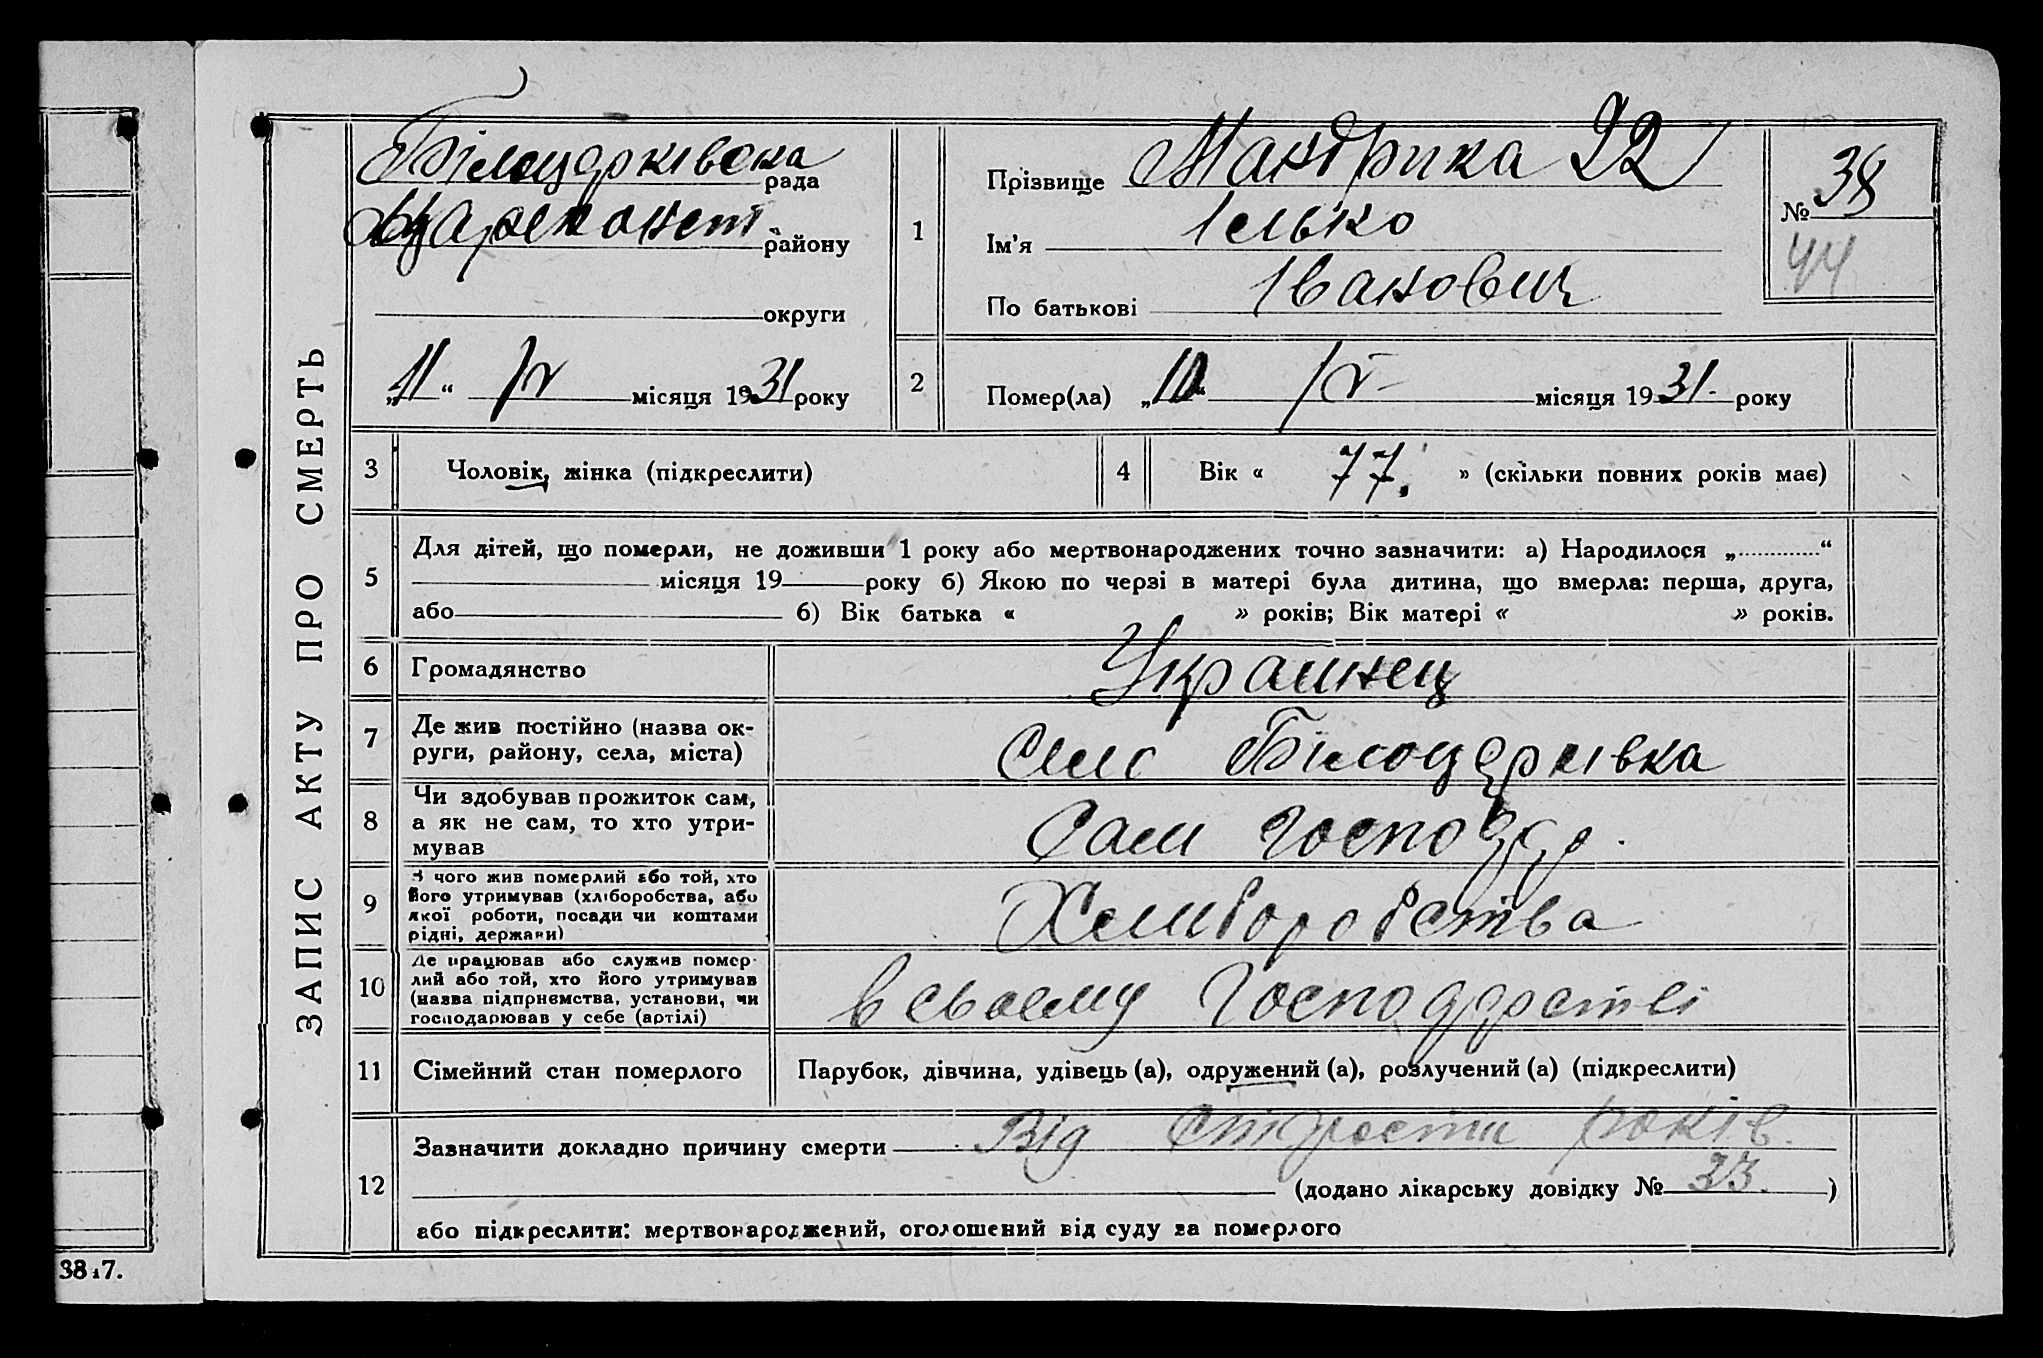 ЗАПИС АКТУ ПРО СМЕРТЬ
Білоцерківська рада
району
округи
„11“ IV місяця 1931 року
1
Прізвище Мандрика 22
Ім'я Ілько
По батькові Іванович
№ 38
44
2
Помер(ла) „10“ IV місяця 1931. року
3 Чоловік, жінка (підкреслити)
4 Вік « 77. » (скільки повних років має)
5 Для дітей, що померли, не доживши 1 року або мертвонароджених точно зазначити: а) Народилося „ “
місяця 19 року б) Якою по черзі в матері була дитина, що вмерла: перша, друга,
або б) Вік батька « » років; Вік матері « » років.
6 Громадянство Украинец
7 Де жив постійно (назва ок-
руги, району, села, міста)
Село Білоцерківка
8 Чи здобував прожиток сам,
а як не сам, то хто утри-
мував
Сам господар.
9 З чого жив померлий або той, хто
його утримував (хліборобства, або
якої роботи, посади чи коштами
рідні, держави)
Хлиборобства
10 Де працював або служив помер-
лий або той, хто його утримував
(назва підприємства, установи, чи
господарював у себе (артілі)
в своему господарстві
11 Сімейний стан померлого
Парубок, дівчина, удівець (а), одружений (а), розлучений (а) (підкреслити)
12 Зазначити докладно причину смерти Від старости років.
(додано лікарську довідку № 33. )
або підкреслити: мертвонароджений, оголошений від суду за померлого